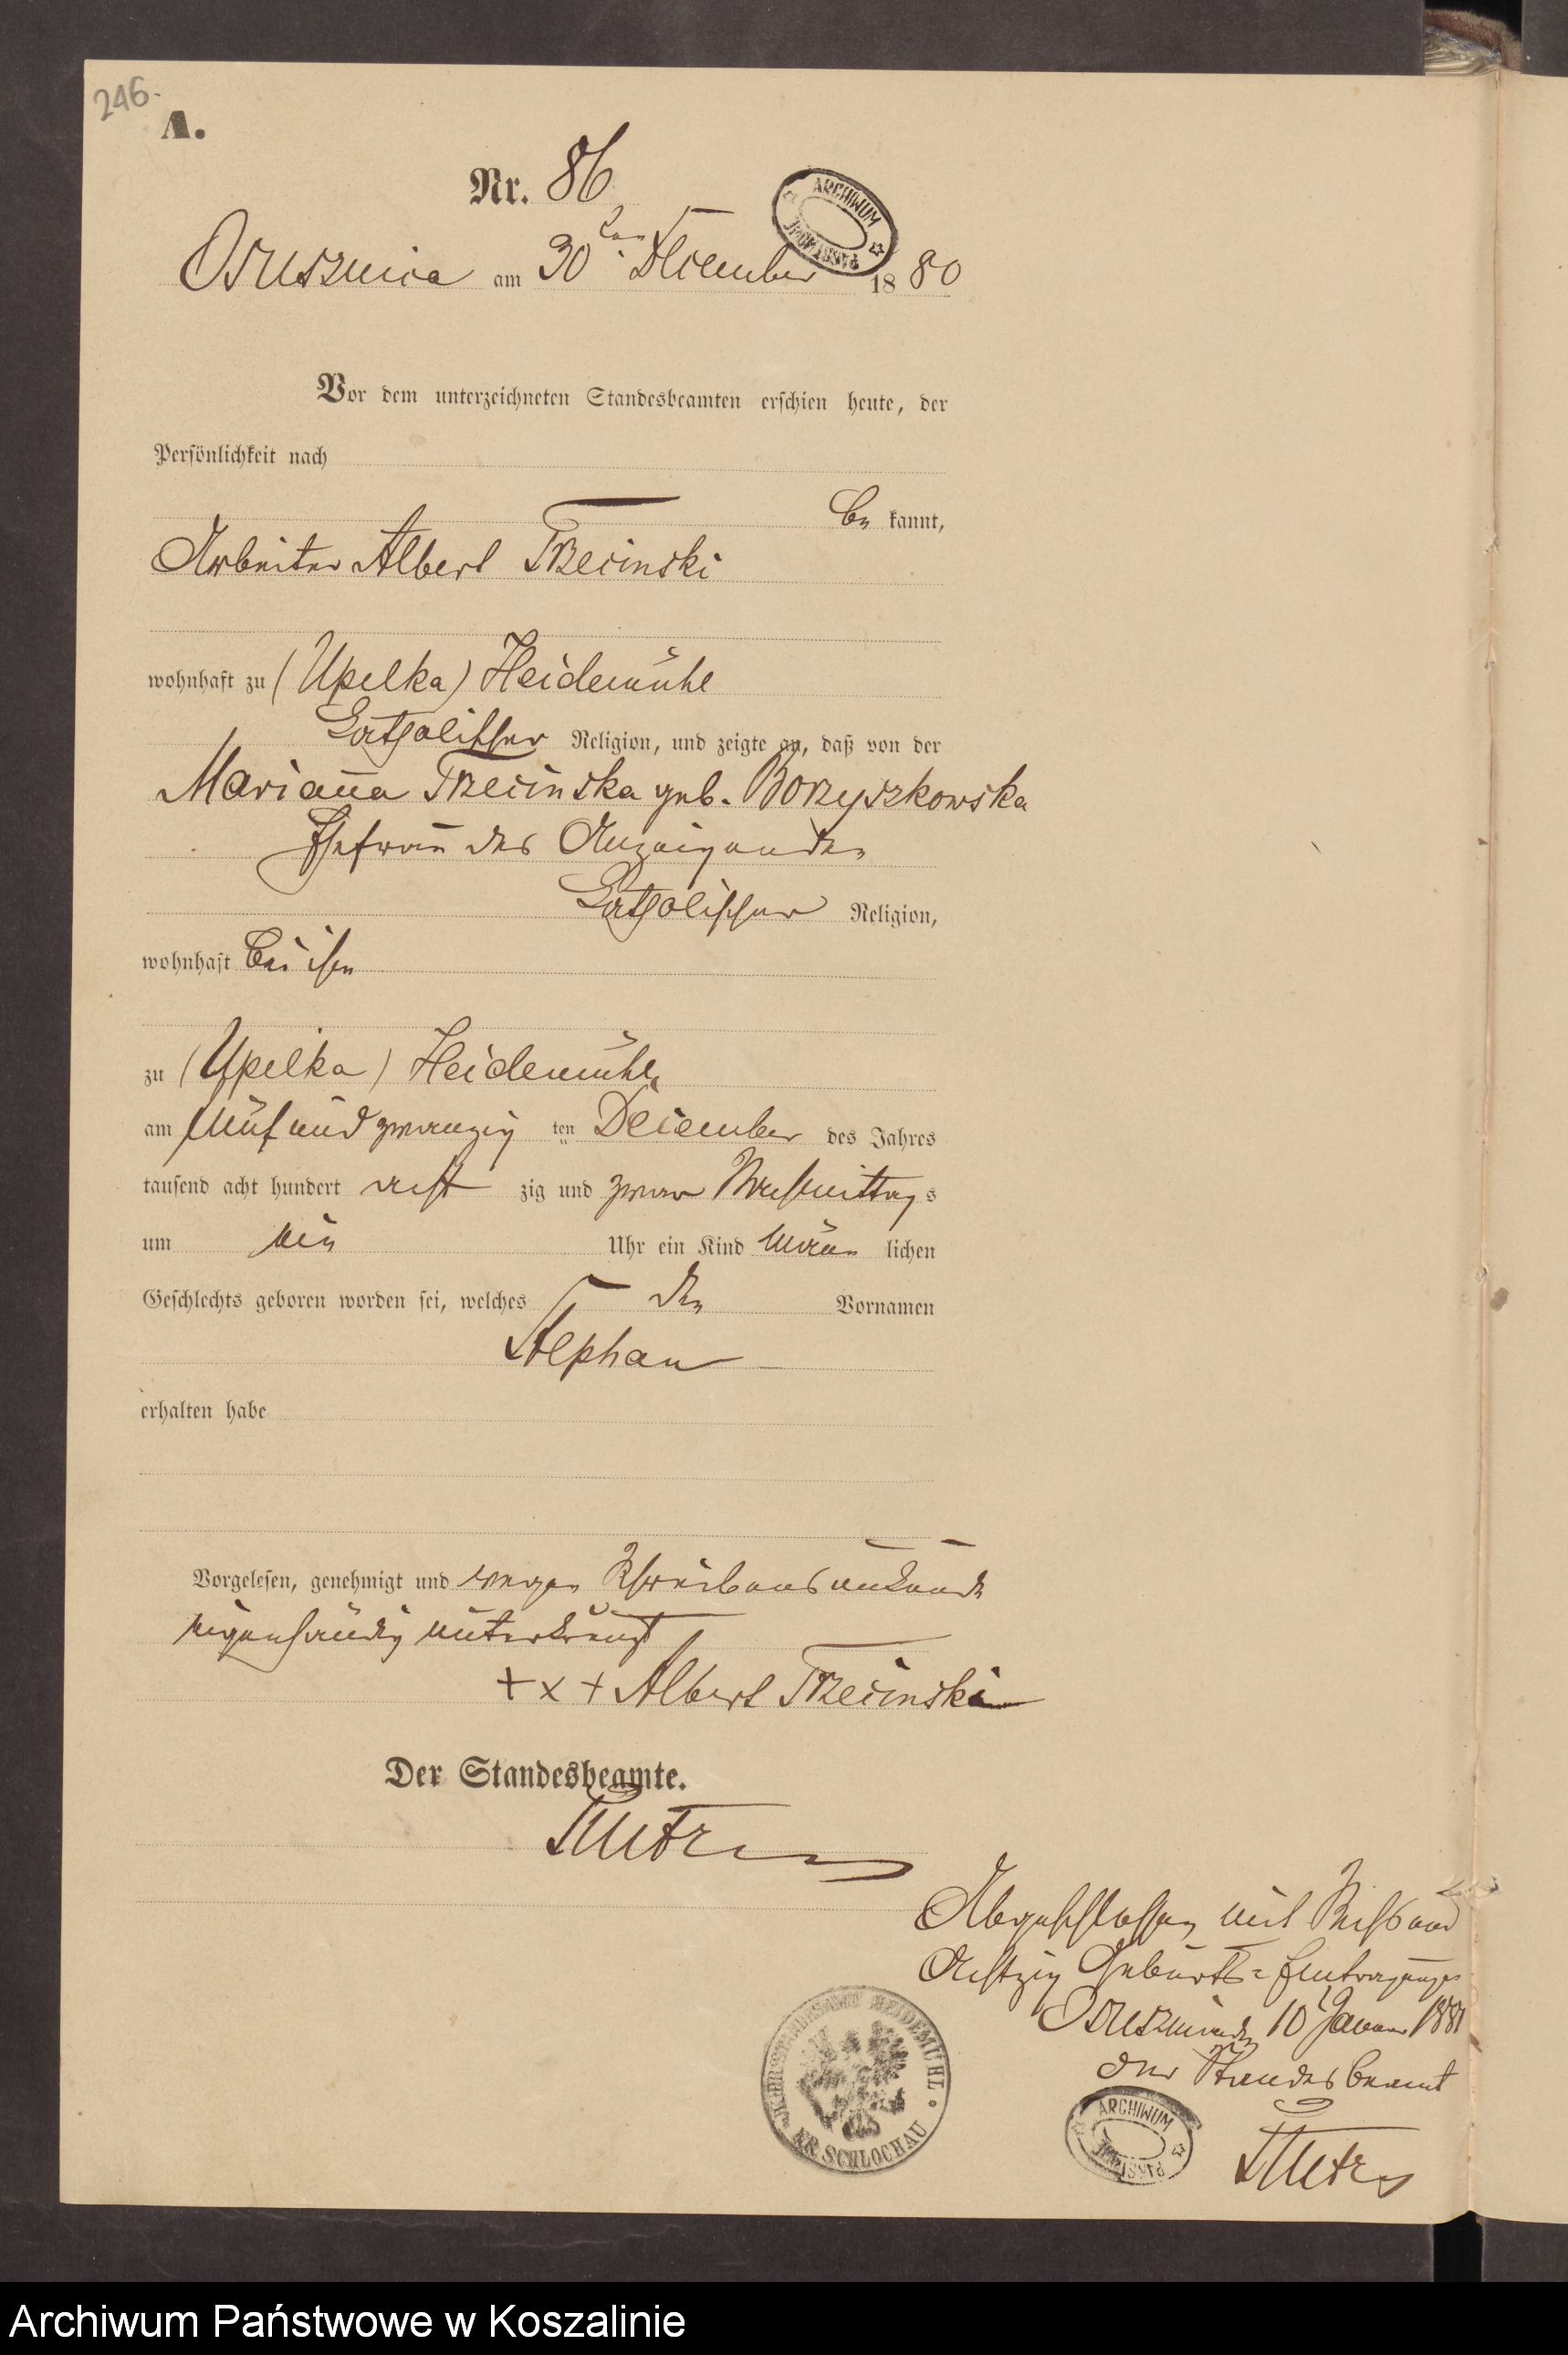 246.
A.
Nr. 86
ARCHIWUM
Osusznica am 30ten December 1880
Vor dem unterzeichneten Standesbeamten erschien heute, der
Persönlichkeit nach
be kannt,
Arbeiter Albert Trzecinski
wohnhaft zu (Upilka) Heidemühl
katholischer Religion, und zeigte an, daß von der
Marianna Trzecinska geb. Borzyszkowska
Ehefrau des Anzeigenden
katholischer Religion,
wohnhaft bei ihm
zu (Upilka) Heidemühl
am fünf und zwanzig ten December des Jahres
tausend acht hundert acht zig und zwar Nachmittags
um ein Uhr ein Kind männ lichen
Geschlechts geboren worden sei, welches den Vornamen
Stephan
erhalten habe
Vorgelesen, genehmigt und wegen Schreibensunkunde
eigenhändig unterkreuzt
+ x + Albert Trzecinski
Der Standesbeamte.
Abgeschlossen mit Sechs und
Achtzig Geburts= Eintragungen
Osusznica 10 Januar 1881
Der Standesbeamt
HEIDEMÜHL
KR. SCHLOCHAU
ARCHIWUM
Archiwum Państwowe w Koszalinie